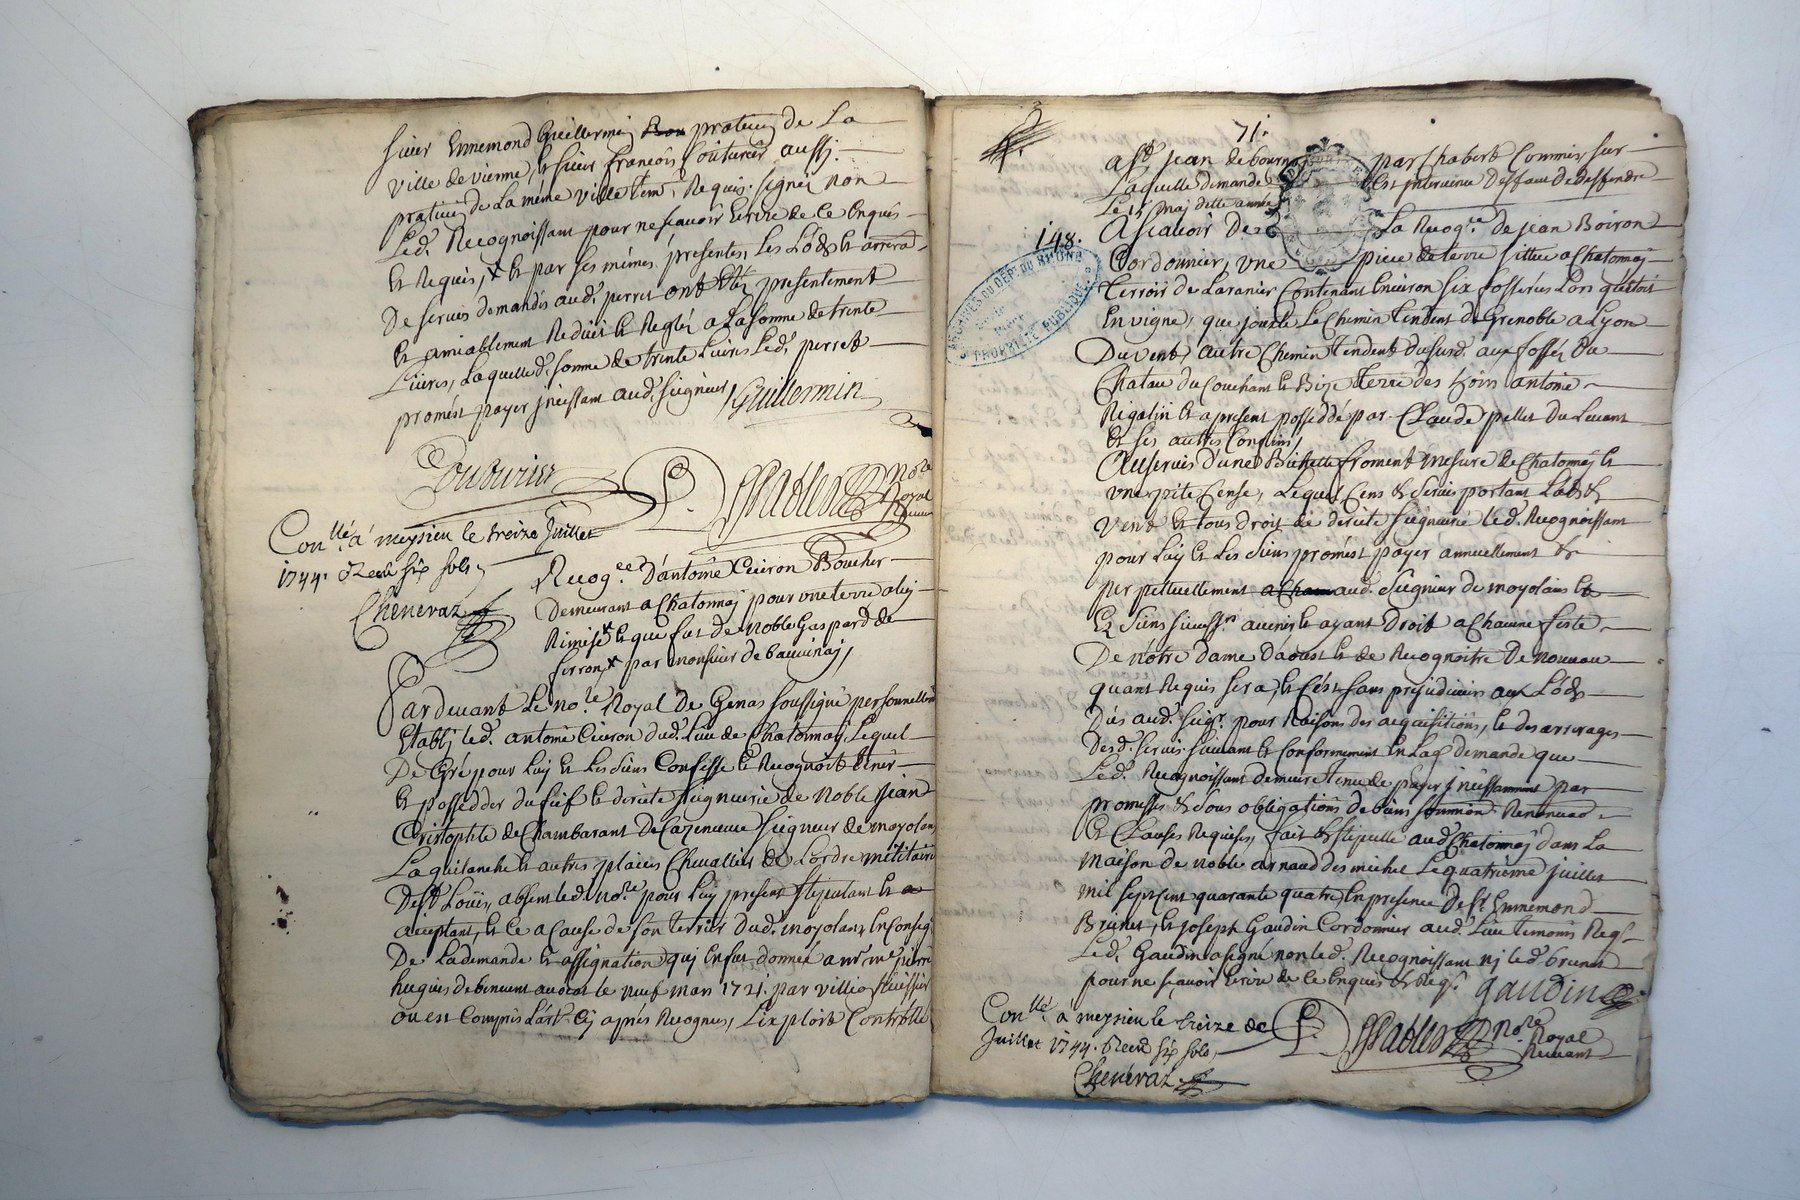 sieur Ennemond Guillermin praticien de La
ville de vienne, et sieur francois Couturier aussi
praticien de La méme ville tem. Requis. signés non
Led. Recognoissant pour ne scavoir Ecrire de Ce Enquis
Et Requis, x et par ses mémes presentes, Les Lods et arrerad.
De servis demandés aud. perret ont etés presentement
Et amiablement Reduit et Reglés a La somme de trente
Livres, Laquelle d. somme de trente Livres Led. perret
promést payer incéssant aud. seigneur Guillermin
Couturier P. Chabert No.re Royal
Con.llé a meysieu le treize Juillet
1744. Receu six sols
Chenevaz
Recog.ce d'antoine Cuiron Boucher
Demeurant a Chatonnaj pour une terre aluj
Rimise x et que fut de Noble Gaspard de
ferron x par monsieur de bauvinaj,
Pardevant Le no.re Royal De Genas soussigné personnellem.
Etablj led. antoine Cuiron dud. Lieu de Chatonnaj Lequel
De Gré pour Luj et Les Siens Confésse et Recognoit tenir
Et posseder du fief et directe seigneurie de Noble Jean
Cristophle de Chambarant De Cazeneuve Seigneur de moyolans
La quitanche et autres places Chevallier de L'ordre militaire
De S.t Loüis, absent led. No.re pour Luy present stipulant et a
acceptant, et Ce a Cause de son terrier dud. moyolans, En Conseq.
De La demande et assignation quj En fut donnée a
hugues de benevent avocat le neuf mars 1721. par villion huissier
ou est Compris L'art. Cj apres Recognu, L'exploit Controllé
71.
a S.t Jean de bournay par Chabert Commis sur
Laquelle demande Est intervenue Deffaut de deffendre
Le 15 maj dette année
148.
Ascavoir De La Recog.ce de jean Boiron
Cordonnier, une piece de terre sittuée a Chatonnaj
terroir de Laranier Contenant Environ six fosserées Lors quétoit
En vigne, que jouxte Le Chemin tendent de Grenoble a Lyon
Du vent, autre Chemin tendent dusurd. aux fossés Du
Chateau du Couchant et Bize terre des hoirs antoine
Rigatin et a present posseddé par Claude pellet du Levant
Et ses autres Confins,
Au servis d'une Bichette froment mesure de Chatonnaj et
une pite Cense, Lequel Cens & servis portant Lods &
Vent Et tous droit de directe seigneurie led. Recognoissant
pour Luy et Les siens promést payer annuellement &
perpetuellement aud. Seigneur de moyolans et
Es Siens success.rs avenir et ayant Droit a Chacune feste
De nôtre dame d'aoust et de Recognoitre De nouveau
quant Requis sera, et C'est sans prejudicier aux Lods
Dûs aud. seig.r pour Raisons des acquisitions, et des arrerages
Desd. servis suivant et Conformement En La d. demande que
Led. Recognoissant demeure tenu de payer incéssamment par
promésses & sous obligations de biens Renonciad.
Et Clauses Requises, fait & stipullé aud. Chatonnaj dans La
maison de noble arnaud des michel Le quatrieme juillet
mil sept cent quarante quatre, En presence De S.r Ennemond
Brunet, et joseph Gaudin Cordonnier aud. Lieu temoins Reqs.
Led. Gaudin a signé non led. Recognoissant nj led. brunet
pour ne scavoir Ecrire de Ce Enquis & Reqs. gaudin
Con.llé a meysieu le treize de
Juillet 1744. Receu six sols
P. Chabert No.re Royal
Recevant
Chenevaz
ARCHIVES DU DÉP.T DU RHÔNE
PROPRIÉTÉ PUBLIQUE